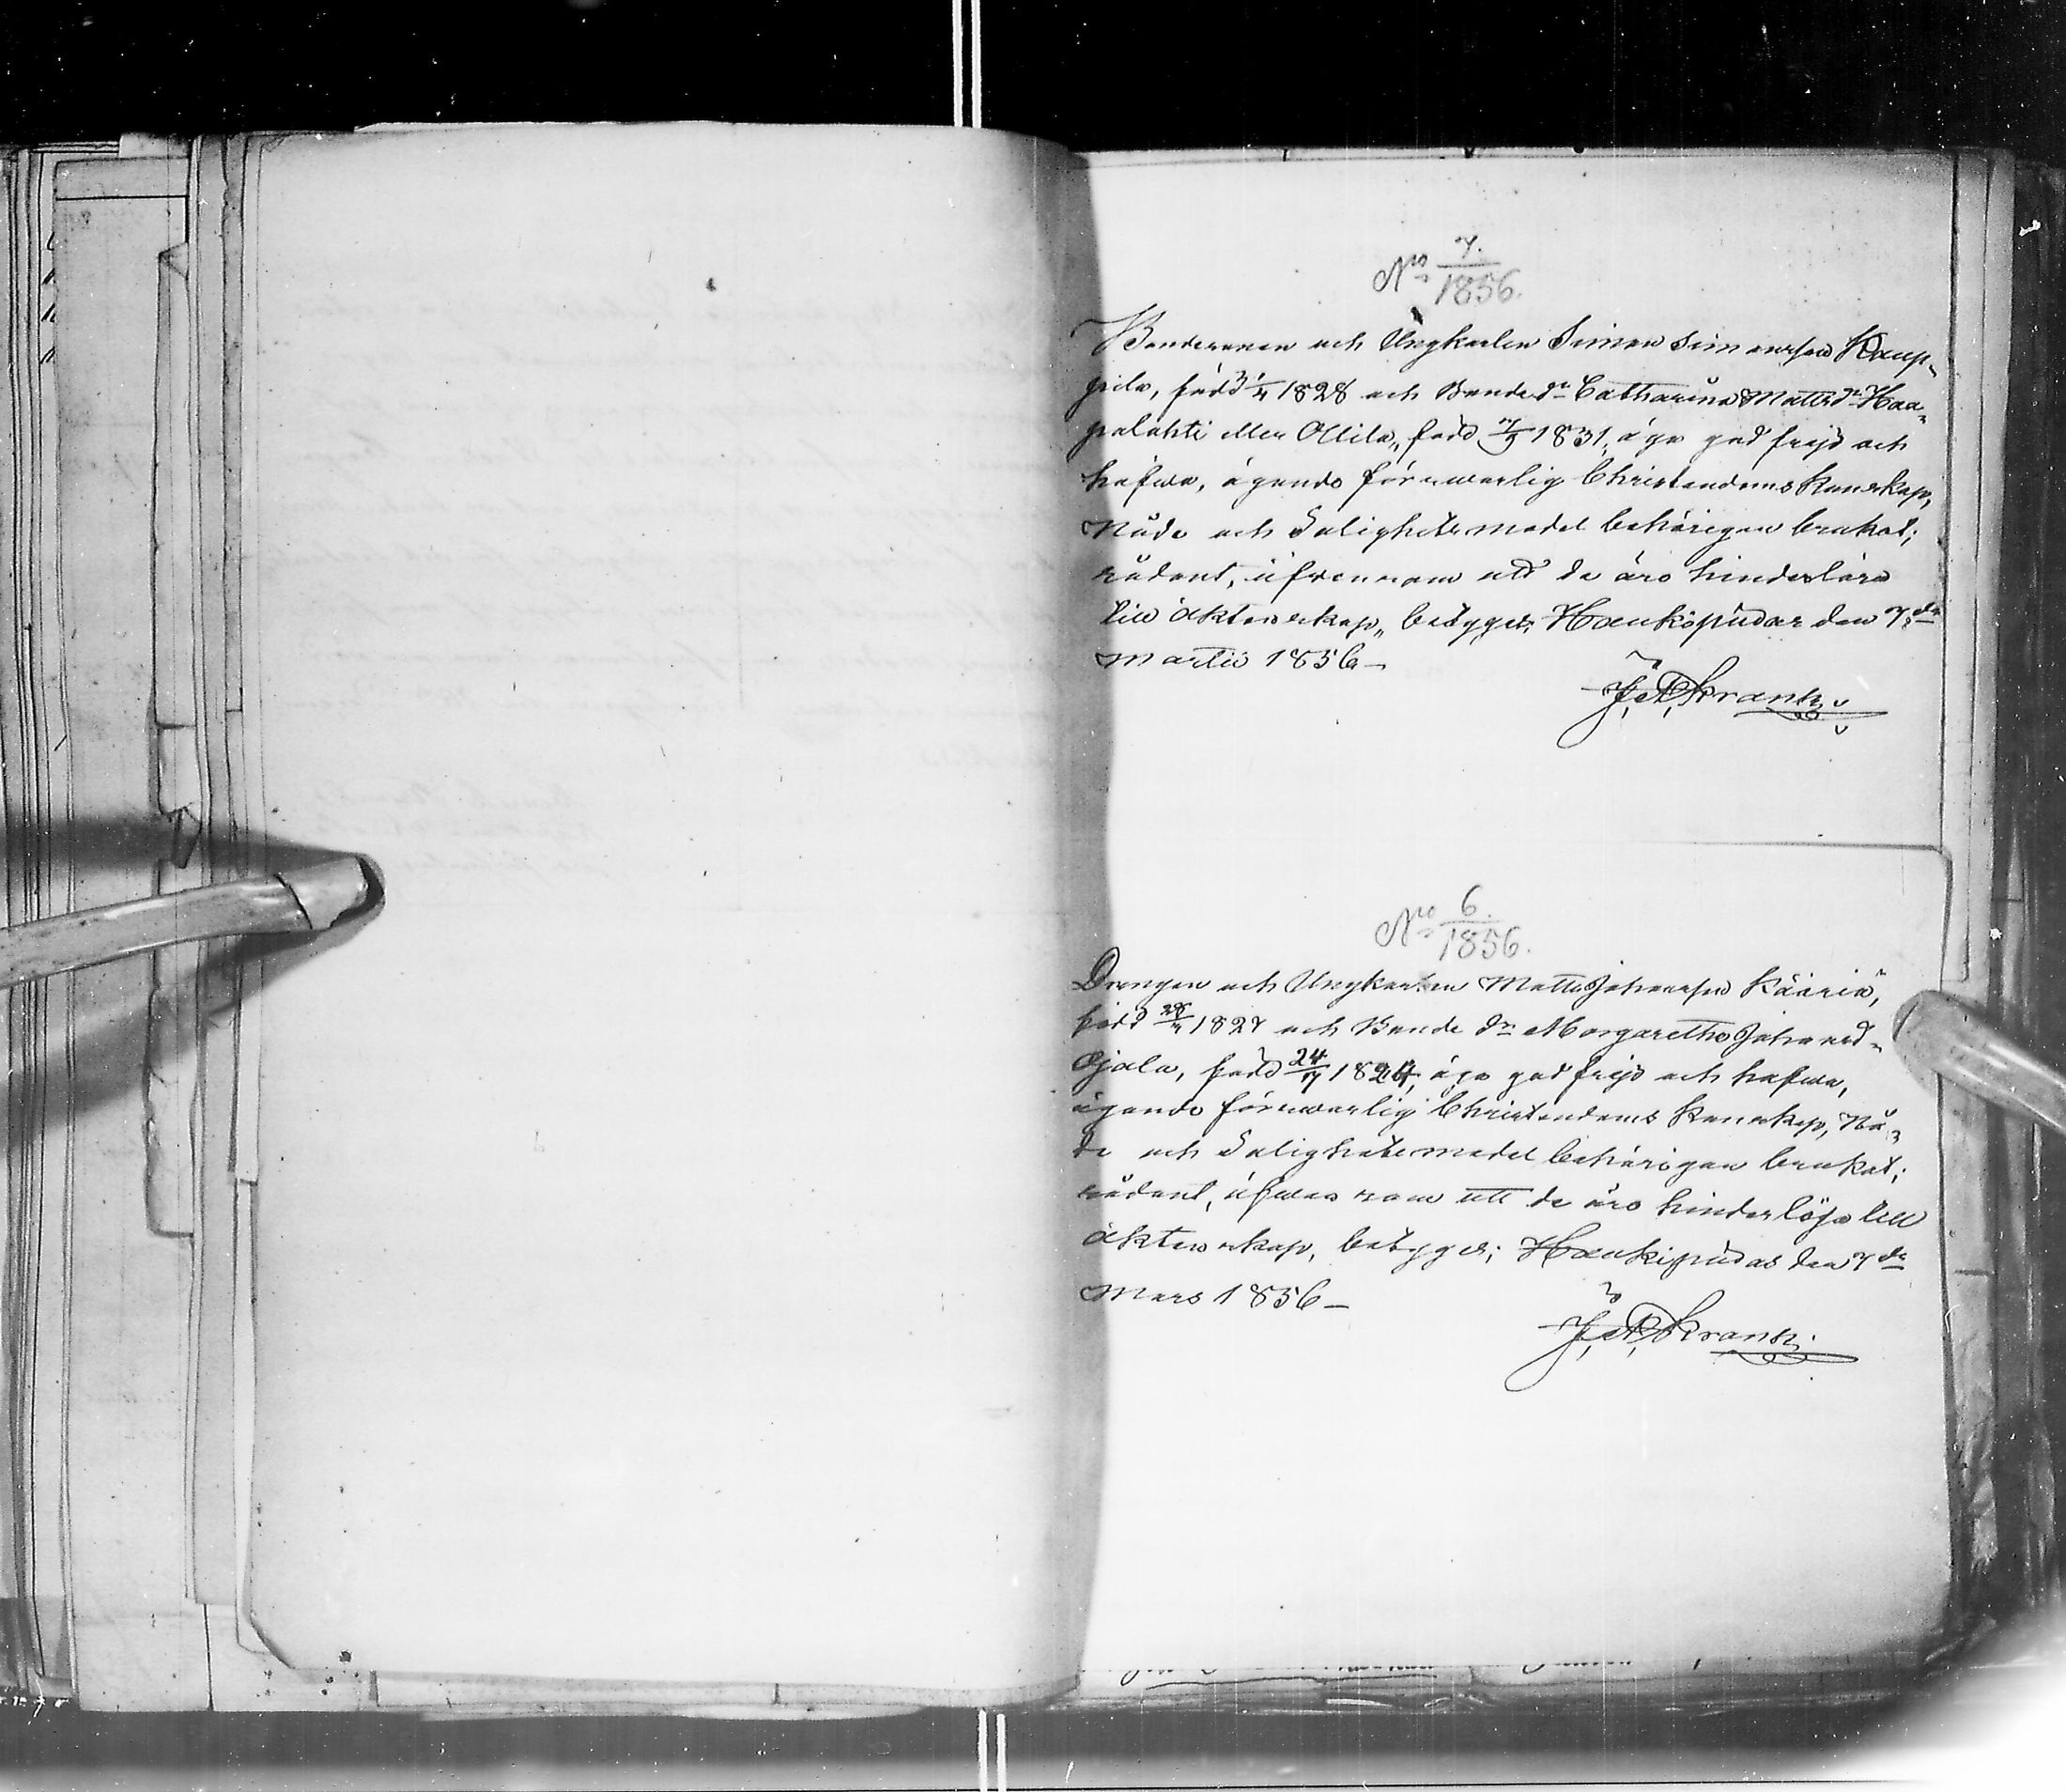 No 7./1856.
Bondesonen och Ungkarlen Simon Simonsson Kaup-
pila, född 1/4 1828 och Bonded:r Catharina Mattsd:r Haa-
palahti eller Ollila, född 7/9 1831, äga god frejd och
hafva, ägande försvarlig Christendoms kunskap,
Nåde och Salighetsmedel behörigen brukat;
sådant, äfvensom att de äro hinderlöse
till äktenskap, betygas; Haukipudas den 7:de
Martii 1856 –
J. A. Frantz
No 6./1856.
Drengen och Ungkarlen Matts Johansson Kääriä,
född 28/4 1827 och Bonde d:r Margaretha Johansd-
Ojala, född 24/7 1824, äga god frejd och hafva,
ägande försvarlig Christendoms kunskap, Nå-
de och Salighetsmedel behörigen brukat;
sådant, äfven som att de äro hinderlöse till
äktenskap, betygas; Haukipudas den 7 de
Mars 1856 –
J. A. Frantz